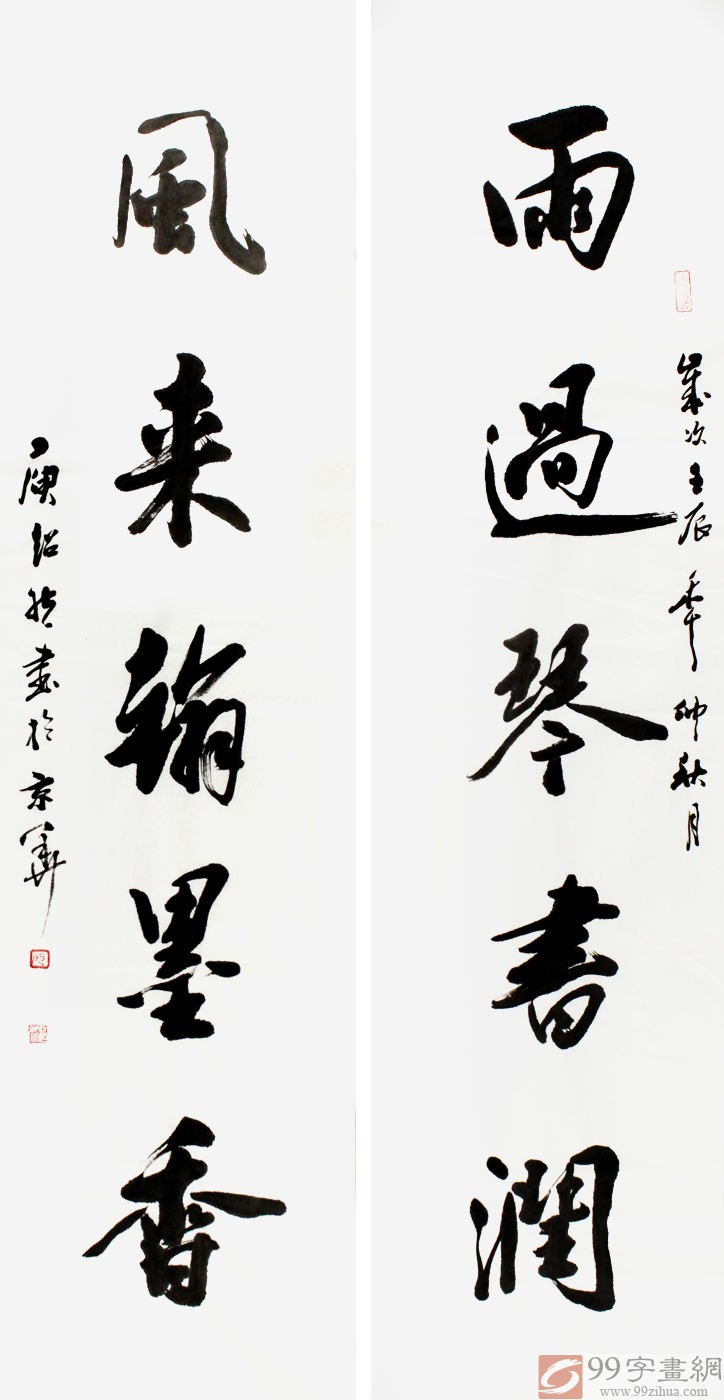 歲次壬辰年仲秋月
雨過琴書潤
風来翰墨香
庾紹 書於京華
99字畫網
www.99zihua.com